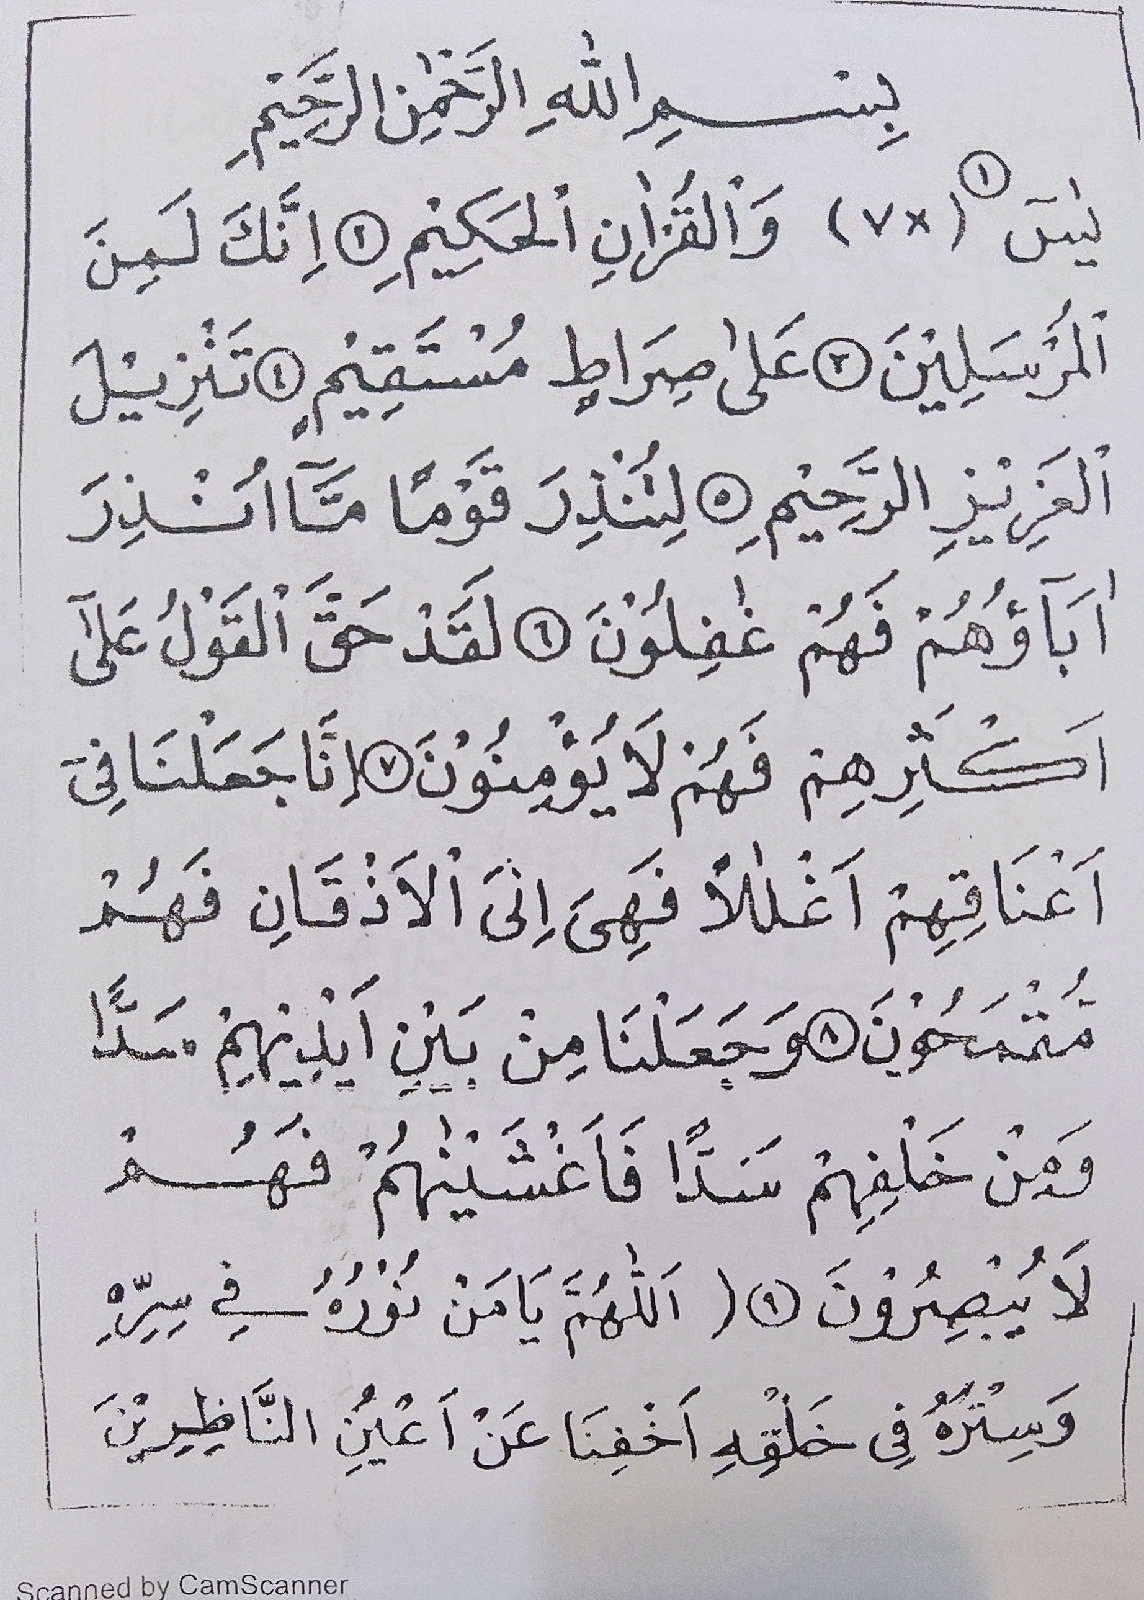 بِسْــــمِ اللّٰهِ الرَّحْمٰنِ الرَّحِيْمِ
يٰسٓ ١ (٧×) وَالْقُرْاٰنِ الْحَكِيْمِ ٢ اِنَّكَ لَـمِنَ
الْمُرْسَلِيْنَ ٣ عَلٰى صِرَاطٍ مُسْتَقِيْمٍ ٤ تَنْزِيْلَ
الْعَزِيْزِ الرَّحِيْمِ ٥ لِتُنْذِرَ قَوْمًا مَّآ اُنْـذِرَ
اٰبَآؤُهُمْ فَهُمْ غٰفِلُوْنَ ٦ لَقَدْ حَقَّ الْقَوْلُ عَلٰٓى
اَكْـثَرِهِمْ فَهُمْ لَا يُؤْمِنُوْنَ ٧ اِنَّا جَعَلْنَا فِىٓ
اَعْنَاقِهِمْ اَغْلٰلًا فَهِىَ اِلَى الْاَذْقَانِ فَهُـمْ
مُّقْمَحُوْنَ ٨ وَجَعَلْنَا مِنْ بَيْنِ اَيْدِيْهِمْ سَدًّا
وَمِنْ خَلْفِهِمْ سَدًّا فَاَغْشَيْنٰهُمْ فَهُــمْ
لَا يُبْصِرُوْنَ ٩ ( اَللّٰهُمَّ يَا مَنْ نُوْرُهُ فِي سِرِّهِ
وَسِتْرُهُ فِى خَلْقِهِ اَخْفِنَا عَنْ اَعْيُنِ النَّاظِرِيْنَ
Scanned by CamScanner